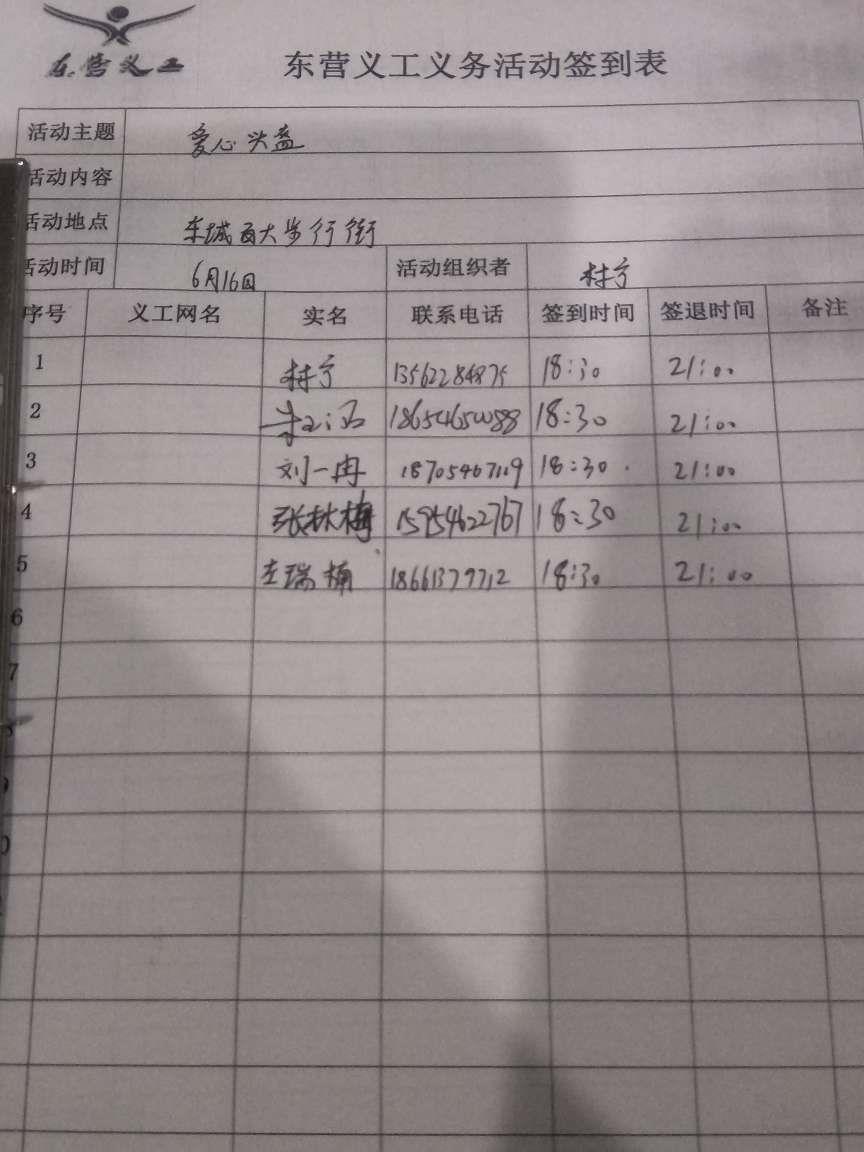 东营义工
东营义工义务活动签到表
活动主题 爱心头盔
活动内容
活动地点 东城百大步行街
活动时间 6月16日 活动组织者 林宁
序号 义工网名 实名 联系电话 签到时间 签退时间 备注
1 林宁 13562284875 18:30 21:00
2 18:30 21:00
3 刘一冉 18705467119 18:30 21:00
4 张林梅 15954622767 18:30 21:00
5 18661379712 18:30 21:00
6
7